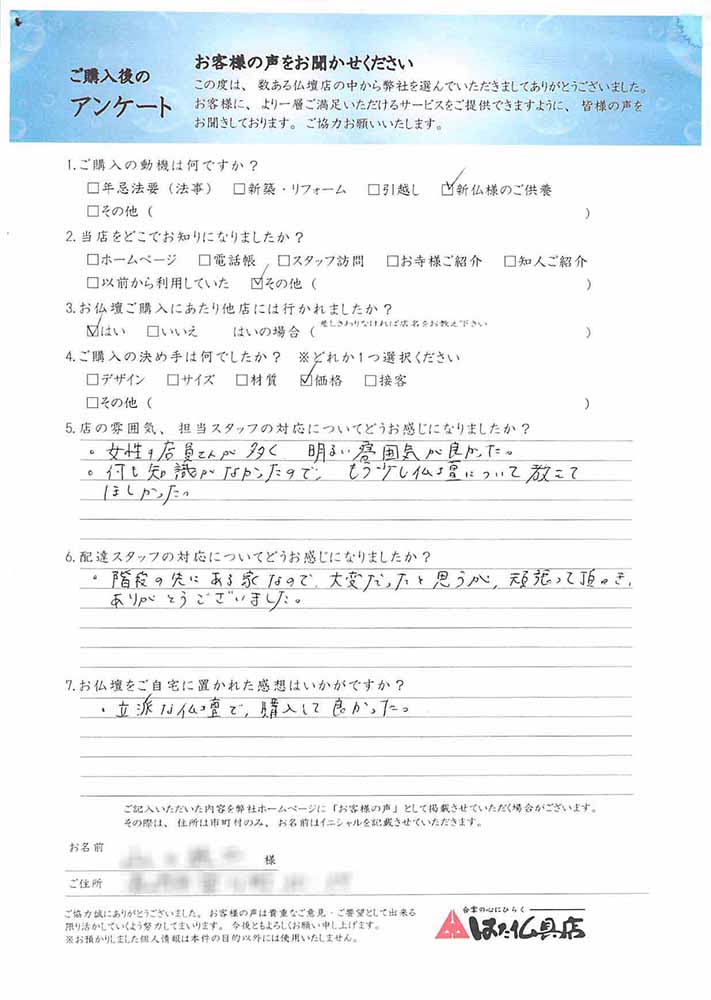 ご購入後の
アンケート
お客様の声をお聞かせください
この度は、数ある仏壇店の中から弊社を選んでいただきましてありがとうございました。
お客様に、より一層ご満足いただけるサービスをご提供できますように、皆様の声を
お聞きしております。ご協力お願いいたします。
1.ご購入の動機は何ですか？
□年忌法要（法事） □新築・リフォーム □引越し ☑新仏様のご供養
□その他（ ）
2.当店をどこでお知りになりましたか？
□ホームページ □電話帳 □スタッフ訪問 □お寺様ご紹介 □知人ご紹介
□以前から利用していた ☑その他（ ）
3.お仏壇ご購入にあたり他店には行かれましたか？
☑はい □いいえ はいの場合（差しさわりなければ店名をお教え下さい ）
4.ご購入の決め手は何でしたか？ ※どれか1つ選択ください
□デザイン □サイズ □材質 ☑価格 □接客
□その他（ ）
5.店の雰囲気、担当スタッフの対応についてどうお感じになりましたか？
。女性の店員さんが多く 明るい雰囲気が良かった。
。何も知識がなかったので、もう少し仏壇について教えて
ほしかった。
6.配達スタッフの対応についてどうお感じになりましたか？
。階段の先にある家なので、大変だったと思うが、頑張って頂き、
ありがとうございました。
7.お仏壇をご自宅に置かれた感想はいかがですか？
・立派な仏壇で、購入して良かった。
ご記入いただいた内容を弊社ホームページに「お客様の声」として掲載させていただく場合がございます。
その際は、住所は市町村のみ、お名前はイニシャルを記載させていただきます。
お名前 様
ご住所
ご協力誠にありがとうございました。お客様の声は貴重なご意見・ご要望として出来る
限り活かしていくよう努力してまいります。今後ともよろしくお願い申し上げます。
※お預かりしました個人情報は本件の目的以外には使用いたしません。
合掌の心にひらく
はた仏具店